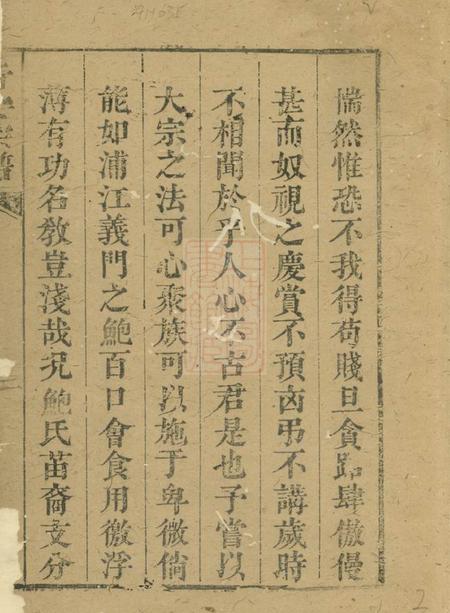 惴然惟恐不我得苟賤且貧路肆傲慢
甚而奴視之慶賞不預凶弔不講歲時
不相聞於乎人心不古君是也予嘗以
大宗之法可心聚族可以施于卑微倘
能如浦江義門之鮑百口會食用徼浮
薄有功名教豈淺哉況鮑氏苗裔支分